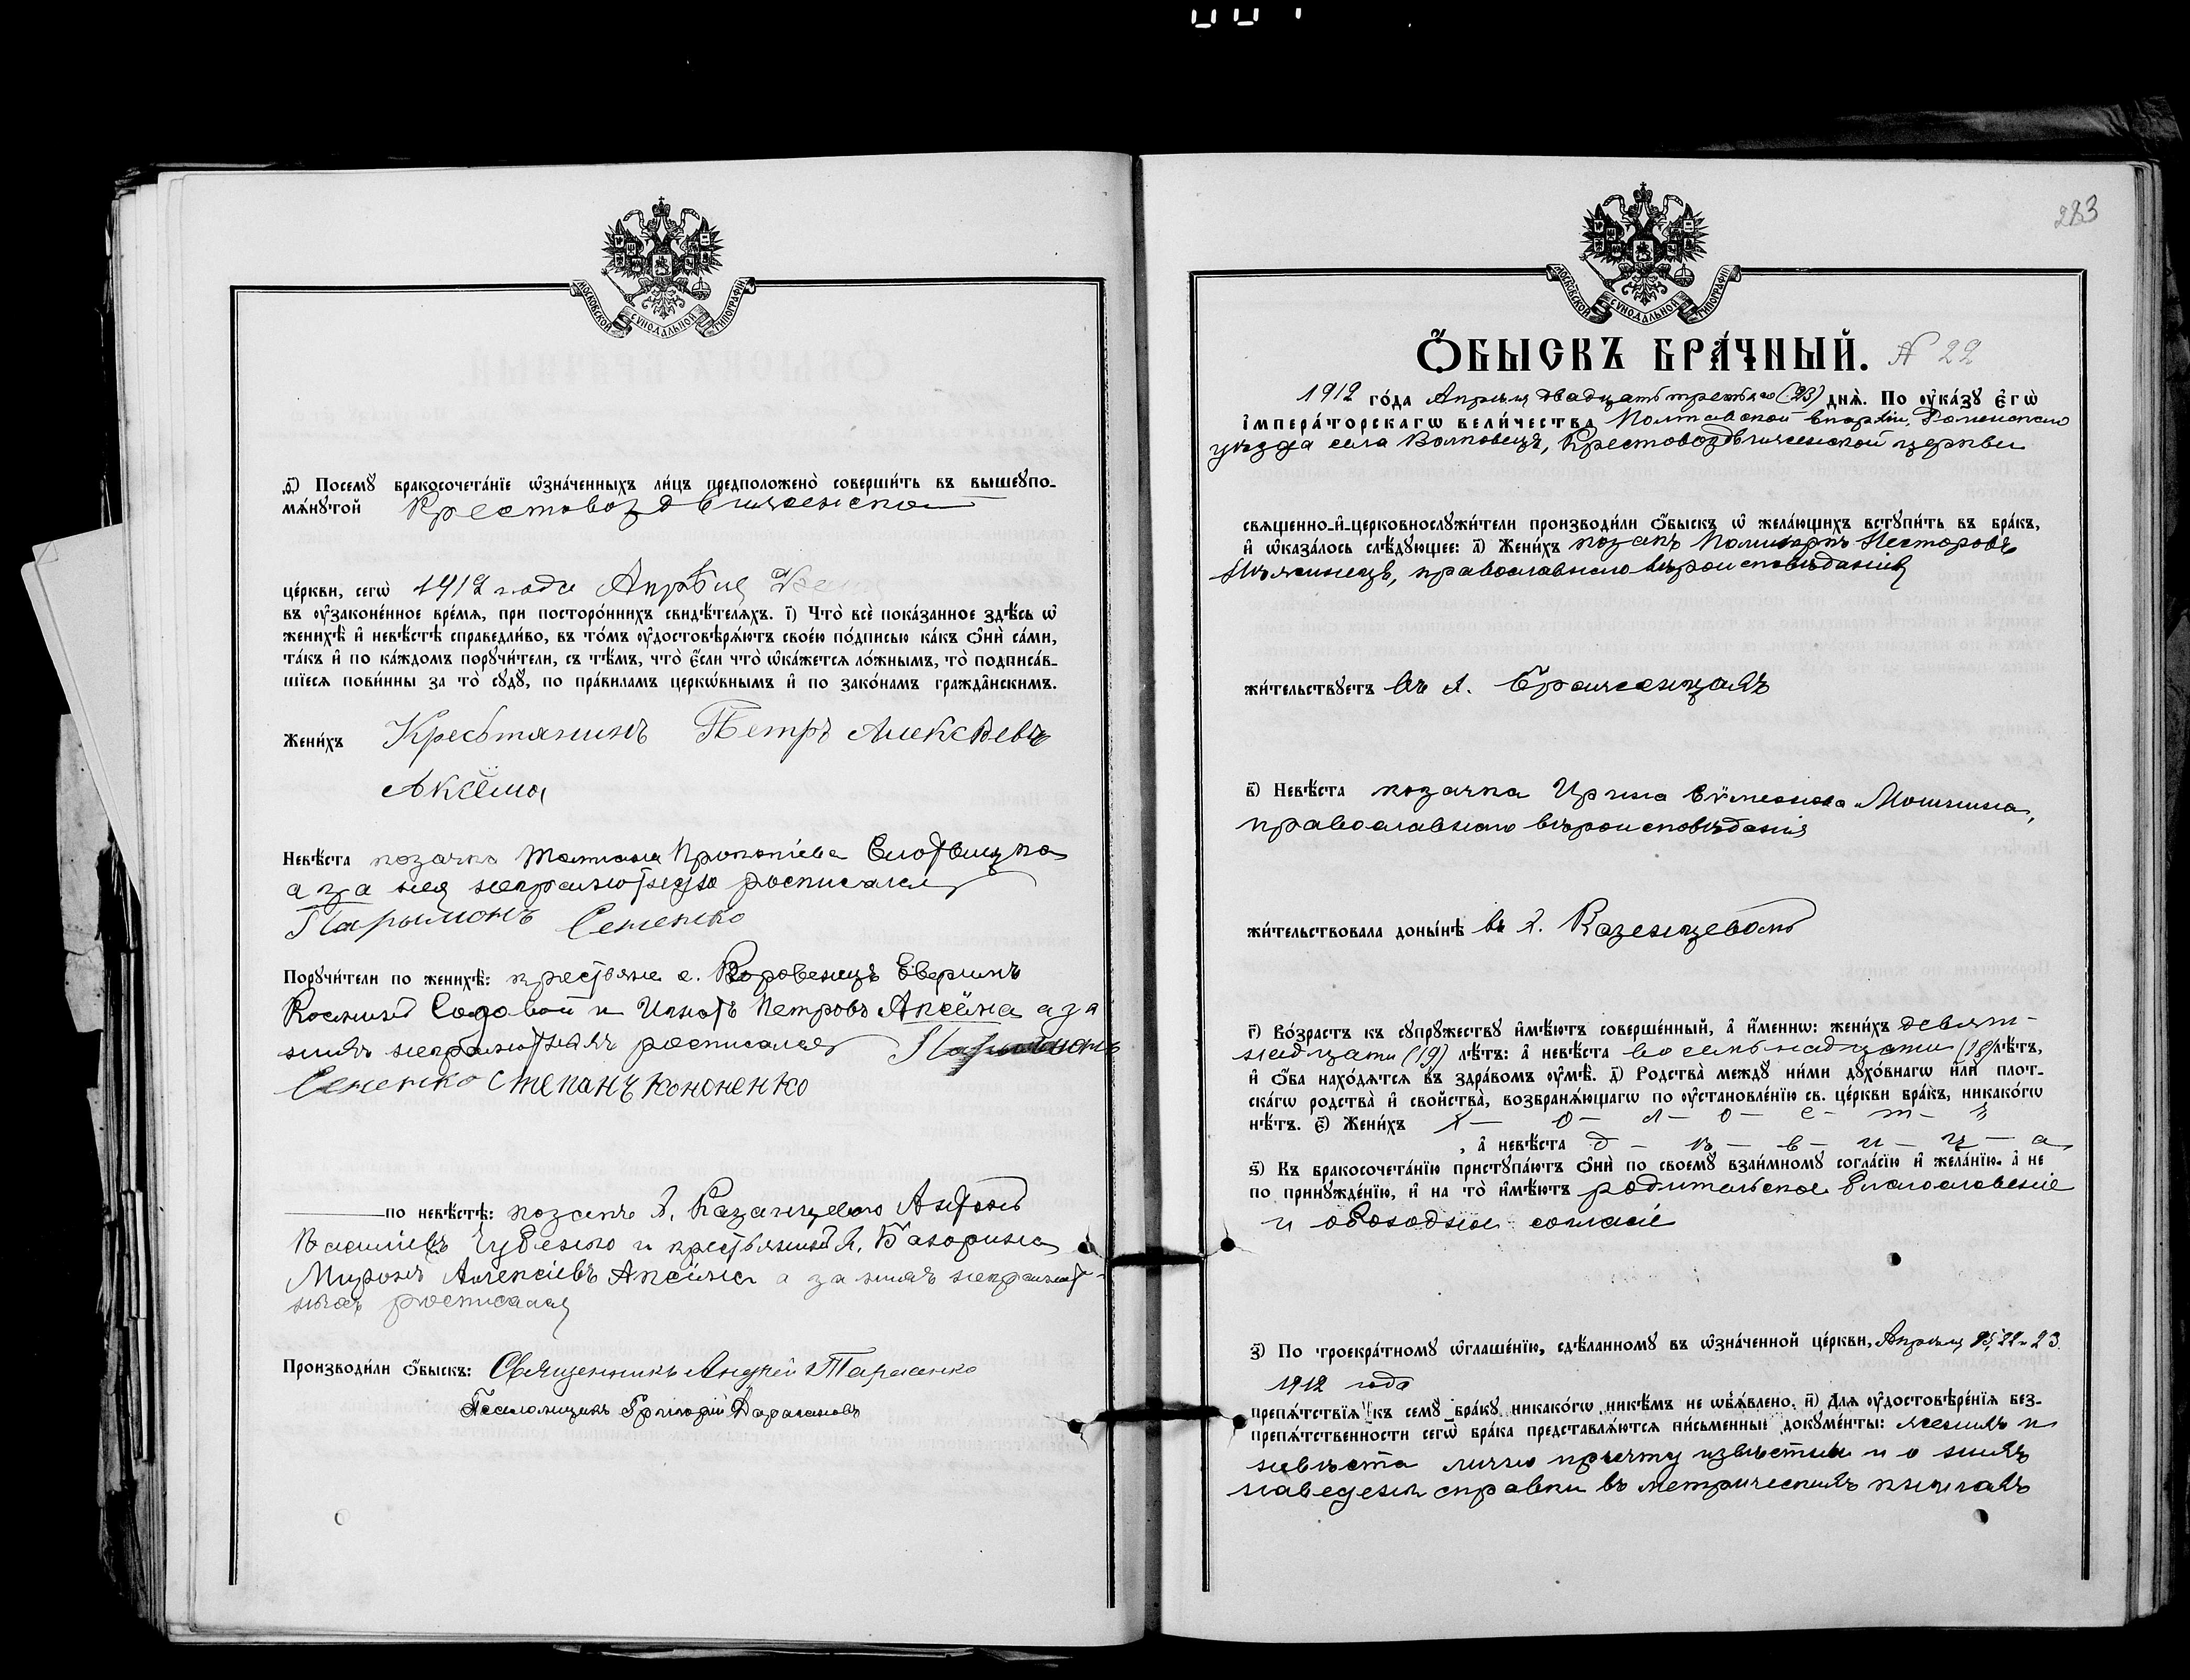 МОСКОВСКОЙ СѴНОДАЛЬНОЙ ТИПОГРАФІИ
д҃) Посемꙋ бракосочета́нїе ѡ҆зна́ченныхъ ли́цъ предположено̀ соверши́ть въ вышеꙋпо-
мѧ́нꙋтой Крестовоздвиженской
це́ркви, сегѡ̀ 1912 года Апрѣля
въ ᲂу҆законе́нное вре́мѧ, при посторо́ннихъ свидѣ́телѧхъ. і҃) Что̀ всѐ пока́занное здѣ́сь ѡ҆
женихѣ̀ и҆ невѣ́стѣ справедли́во, въ то́мъ ᲂу҆достовѣрѧ́ютъ свое́ю по́дписью ка́къ ѻ҆нѝ са́ми,
та́къ и҆ по ка́ждомъ порꙋчи́тели, съ тѣ́мъ, что̀ є҆́сли что̀ ѡ҆ка́жетсѧ ло́жнымъ, то̀ подписа́в-
шїесѧ пови́нны за то̀ сꙋдꙋ̀, по пра́виламъ церкѡ́внымъ и҆ по зако́намъ гражда̑нскимъ.
Жени́хъ Крестьянинъ Петръ Алексѣевъ
Аксёма
Невѣ́ста козачка Татіана Прокопіева
а за нея неграмотную росписался
Парымонъ Сененко
Порꙋчи́тели по женихѣ̀: крестьяне с.
Садовой и Игнатъ Петровъ Аксёма а за
нихъ неграмотныхъ росписался
Сененко Степанъ Кононенко
по невѣ́стѣ: козакъ х. Казенцевого Антонъ
Василіевъ и крестьянинъ х.
Миронъ Алексіевъ Аксёма а за нихъ неграмот-
ныхъ росписался
Производи́ли ѻ҆́быскъ: Священникъ Андрей Тарасенко
Псаломщикъ Григорій
283
МОСКОВСКОЙ СѴНОДАЛЬНОЙ ТИПОГРАФІИ
Ѻ҆́БЫСКЪ БРА́ЧНЫЙ. № 22
1912 го́да Апрѣля двадцать третьяго (23) днѧ̀. По ᲂу҆ка́зꙋ є҆гѡ̀
і҆мпера́торскагѡ вели́чества Полтавской епархіи, Роменскаго
уѣзда села Волковецъ, Крестовоздвиженской церкви
свѧщенно-и҆-церковнослꙋжи́тели производи́ли ѻ҆́быскъ ѡ҆ жела́ющихъ встꙋпи́ть въ бра́къ,
и҆ ѡ҆каза́лось слѣ́дꙋющее: а҃) Жени́хъ козакъ Поликарпъ Несторовъ
православнаго вѣроисповѣданія
жи́тельствꙋетъ въ х.
в҃) Невѣ́ста козачка Ирина Евѳиміева Мошнина,
православнаго вѣроисповѣданія
жи́тельствовала доны́нѣ въ х. Казенцевомъ
г҃) Во́зрастъ къ сꙋпрꙋ́жествꙋ и҆мѣ́ютъ соверше́нный, а҆ и҆́меннѡ: жени́хъ девят-
надцати (19) лѣ́тъ: а҆ невѣ́ста восемьнадцати (18) лѣ́тъ,
и҆ ѻ҆́ба нахо́дѧтсѧ въ здра́вомъ ᲂу҆мѣ̀. д҃) Родства̀ междꙋ̀ ни́ми дꙋхо́внагѡ и҆лѝ плот-
ска́гѡ родства̀ и҆ свойства̀, возбранѧ́ющагѡ по ᲂу҆становле́нїю св. це́ркви бра́къ, никако́гѡ
нѣ́тъ. є҃) Жени́хъ х — о — л — о — с — т — ъ
, а҆ невѣ́ста д — ѣ — в — и — ц — а
ѕ҃) Къ бракосочета́нїю пристꙋпа́ютъ ѻ҆нѝ по своемꙋ̀ взаи́мномꙋ согла́сїю и҆ жела́нїю, а҆ не
по принꙋжде́нїю, и҆ на то̀ и҆мѣ́ютъ родительское благословеніе
и обоюдное согласіе
з҃) По троекра́тномꙋ ѡ҆глаше́нїю, сдѣ́ланномꙋ въ ѡ҆зна́ченной це́ркви, Апрѣля 15, 22 и 23
1912 года
препѧ́тствїѧ къ семꙋ̀ бра́кꙋ никако́гѡ никѣ́мъ не ѡ҆б̾ѧ́влено. и҃) Длѧ ᲂу҆достовѣре́нїѧ без-
препѧ́тственности сегѡ̀ бра́ка представлѧ́ютсѧ пи́сьменные докꙋме́нты: женихъ и
невѣста лично причту извѣстны и о нихъ
наведены справки въ метрическихъ книгахъ